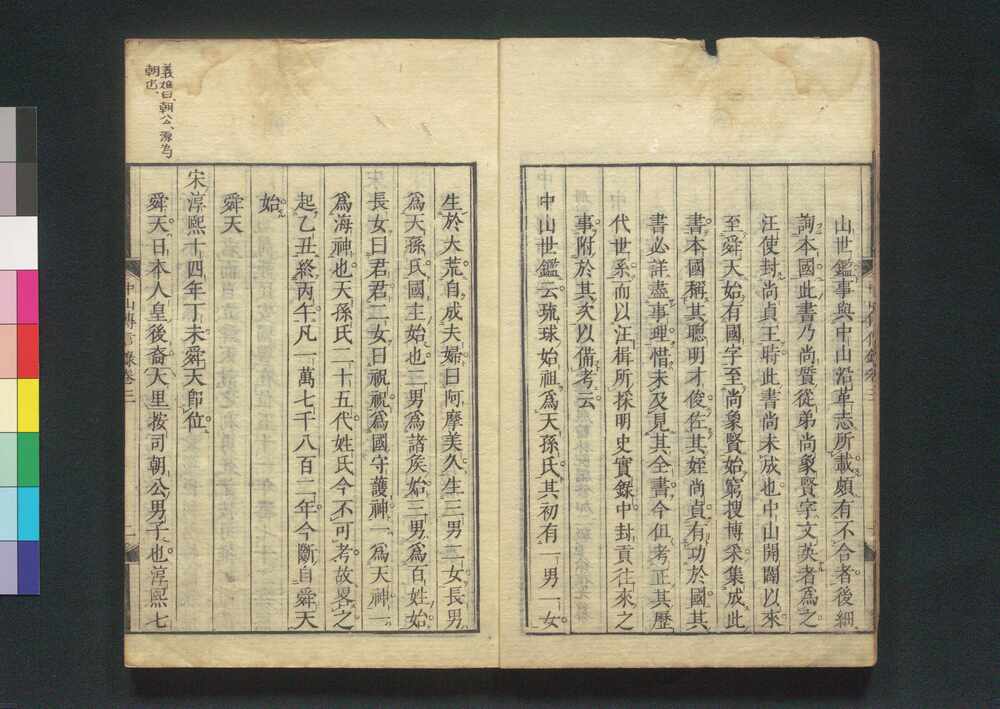 山世鑑事與中山沿革志所載頗有不合者後細
詢本國此書乃尚質從弟尚象賢字文英者為之
汪使封尚貞王時此書尚未成也中山開闢以來
至舜天始有國字至尚象賢始窮搜博釆集成此
書本國稱其聰明才俊佐其姪尚貞有功於國其
書必詳盡事理惜未及見其全書今但考正其歷
代世系而以汪楫所採明史實錄中封貢往來之
事附於其次以備考云
中山世鑑云琉球始祖為天孫氏其初有一男一女
生於大荒自成夫婦曰阿摩美久生三男二女長男
為天孫氏國主始也二男為諸侯始三男為百姓始
長女曰君君二女曰祝祝為國守護神一為天神一
為海神也天孫氏二十五代姓氏今不可考故畧之
起乙丑終丙午凡一萬七千八百二年今斷自舜天
始
舜天
宋淳熙十四年丁未舜天即位
舜天日本人皇後裔大里按司朝公男子也淳熙七
中山傳信錄卷三
義雄曰朝公源為
朝也